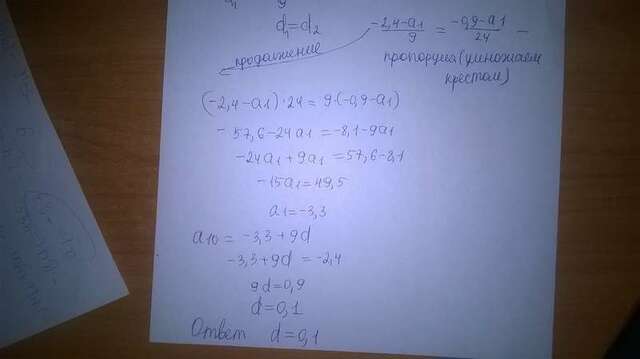 d₁=d₂
(-2,4-a1)/9 = (-0,9-a1)/24 -
продолжение
пропорция (умножаем
крестом)
(-2,4-a1)·24=9·(-0,9-a1)
-57,6-24a1=-8,1-9a1
-24a1+9a1=57,6-8,1
-15a1=49,5
a1=-3,3
a10=-3,3+9d
-3,3+9d=-2,4
9d=0,9
d=0,1
Ответ d=0,1